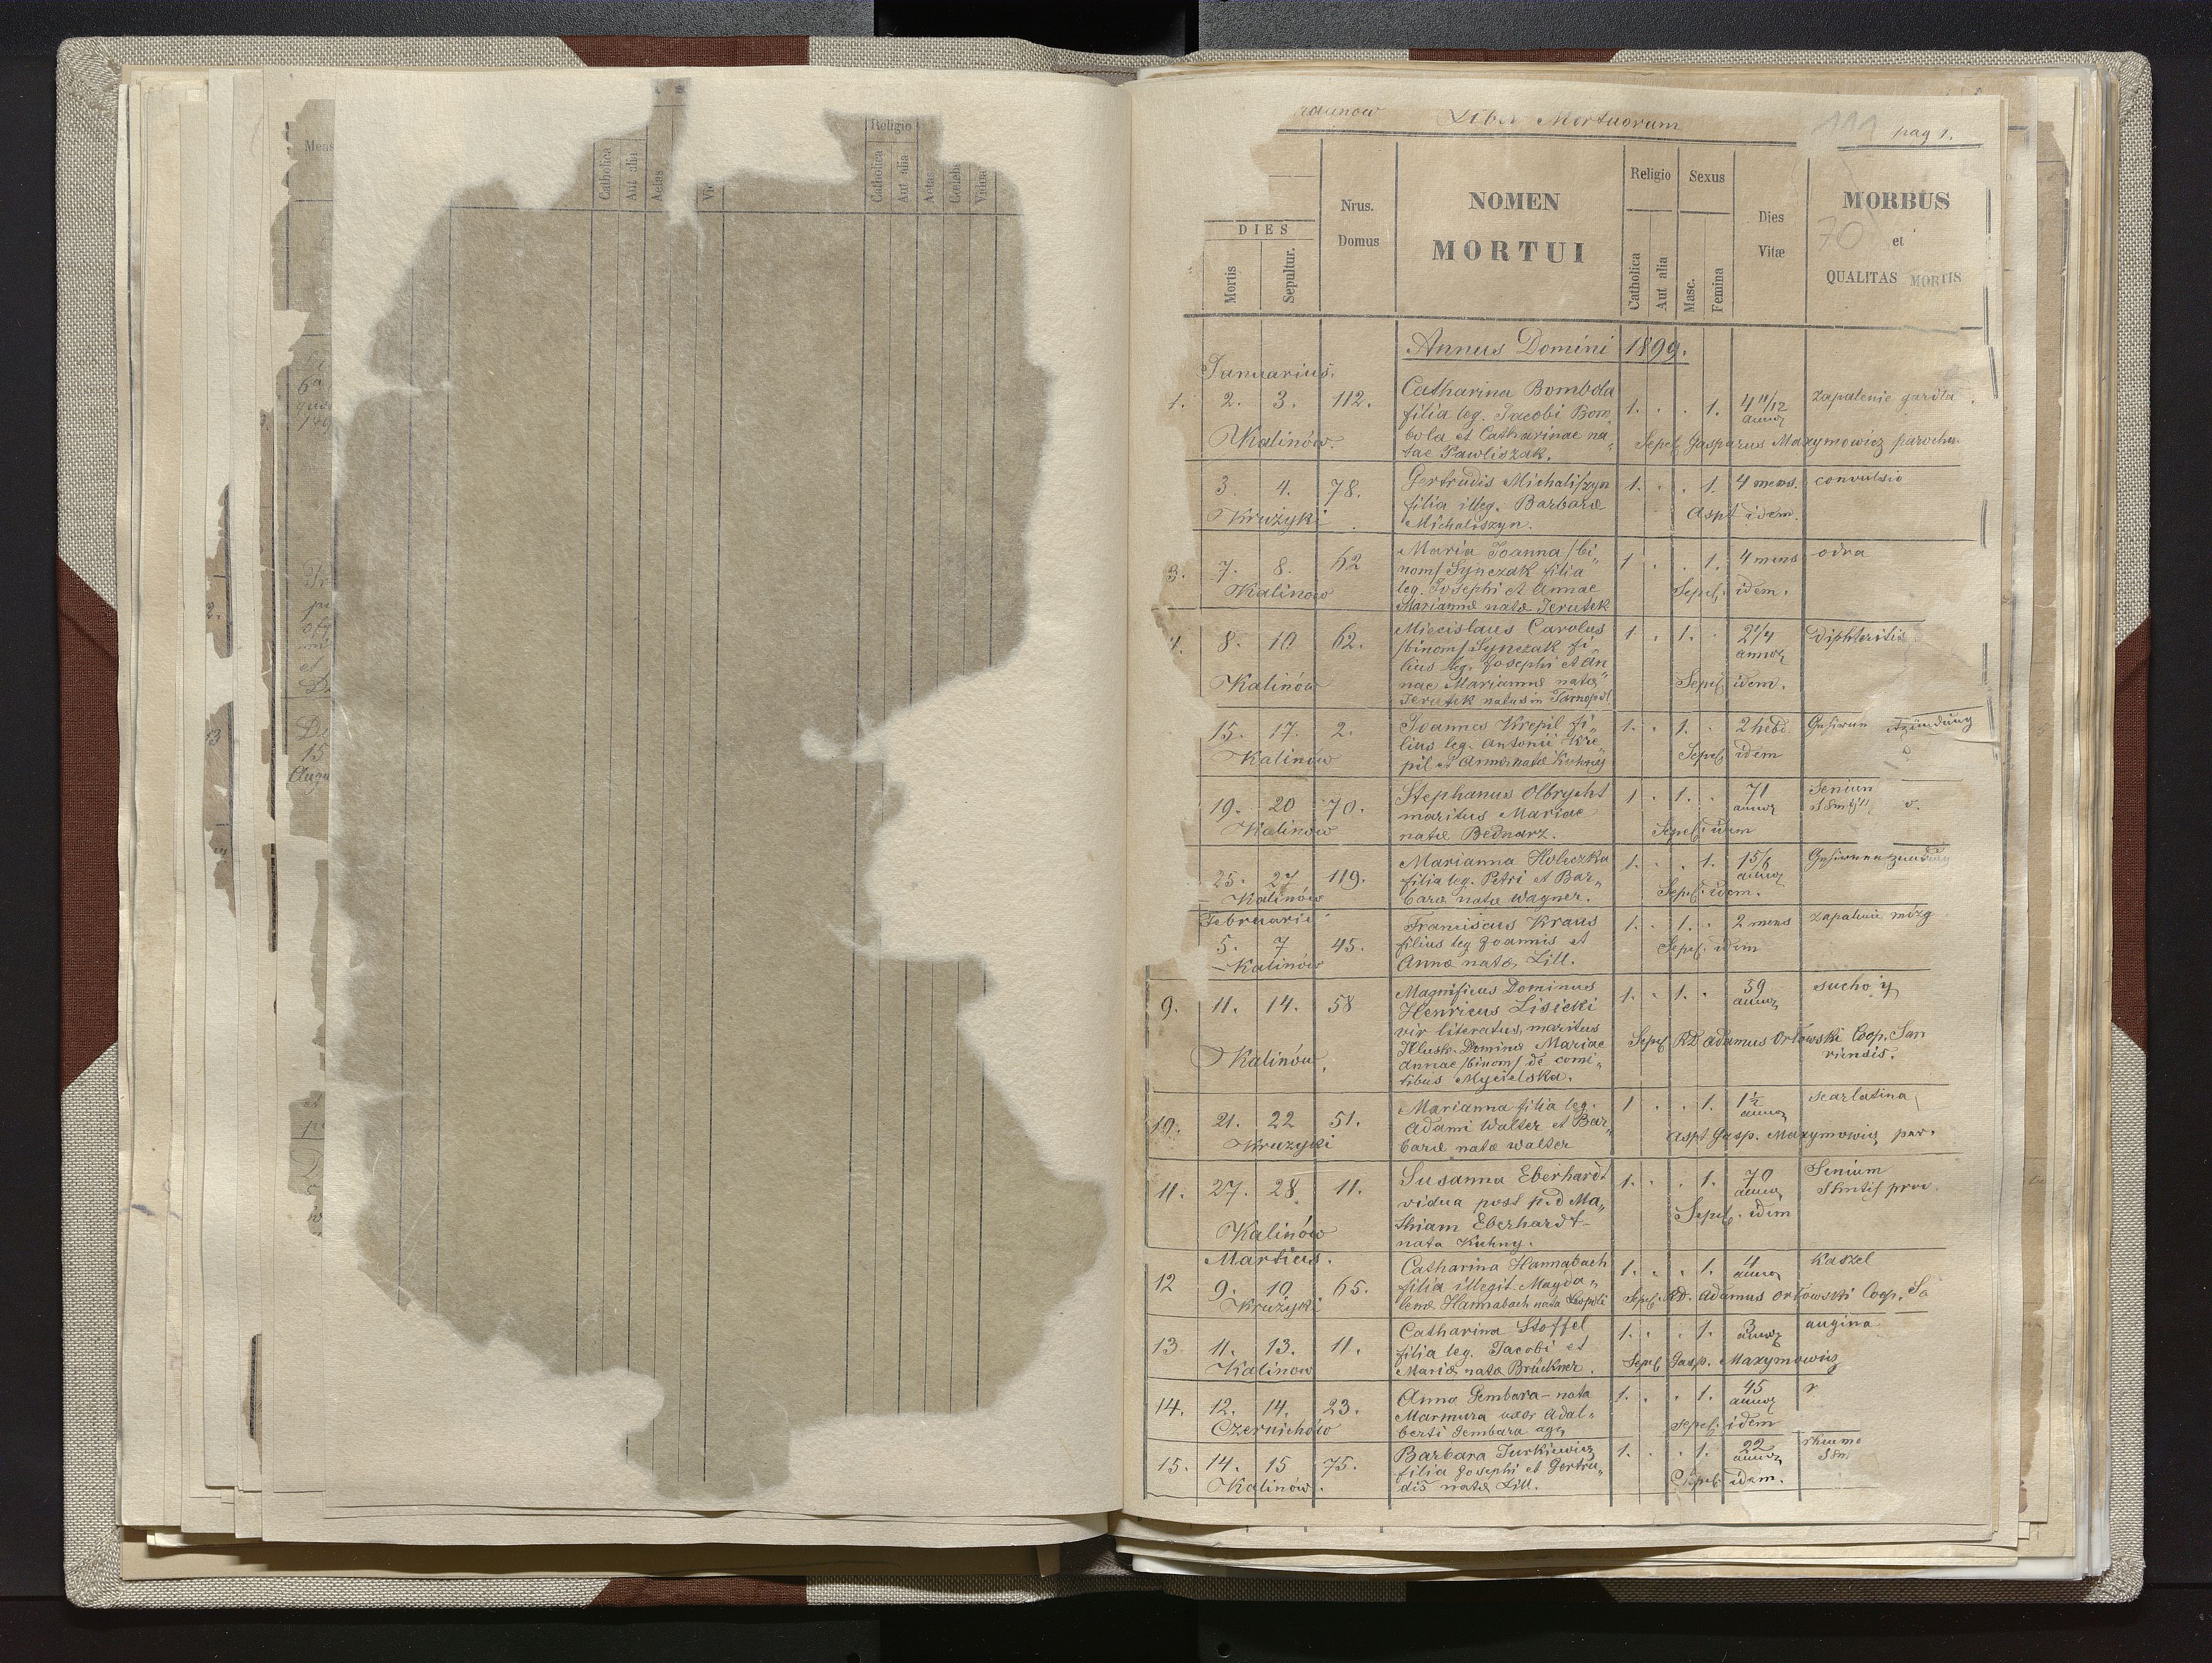 Meas
Religio
Catholica
Aut alia
Aetas
Catholica
Aut alia
Aetas
Cœlebs
Vidua
Liber Mortuorum
111
pag 1.
DIES
Mortis
Sepultur.
Nrus.
Domus
NOMEN
MORTUI
Religio
Catholica
Aut alia
Sexus
Masc.
Femina
Dies
Vitæ
MORBUS
70
et
QUALITAS MORTIS
Annus Domini 1899.
Januarius.
1. 2. 3. 112. Catharina Bombola 1. . . 1. 4 11/12 zapalenie gardła
filia leg. Jacobi Bom annor
Kalinów. bola et Catharinae na„ Sepel Gasparus Maxymowicz parochus
tae Pawliszak.
3. 4. 78. Gertrudis Michaliszyn 1. . . 1. 4 mens. convulsio
filia illeg. Barbaræ
Krużyki Michaliszyn. Aspt idem.
3. 7. 8. 62 Maria Joanna /bi„ 1 . . 1. 4 mens odra
nom/ Synczak filia
Kalinów leg. Josephi et Annae Sepel: idem.
Mariannæ natæ Jerutek
4. 8. 10 62. Miecislaus Carolus 1. . 1. . 2 1/4 Diphteritis
/binom/ Synczak fi„ annor
lius leg. Josephi et An
Kalinów nae Mariannæ natæ Sepel: idem.
Jerutek natus in Tarnopol
15. 17. 2. Joannes Krepil fi„ 1. . 1. . 2 hebd.
lius leg. Antonii Kre„
Kalinów pil et Annæ natæ Kuhny Sepel: idem
19. 20 70. Stephanus Olbrycht 1 . 1. . 71 Senium
maritus Mariae annor
Kalinów natæ Bednarz. Sepel: idem
25. 27 119. Marianna Holiczka 1. . . 1. 1 5/6
filia leg. Petri et Bar„ annor
Kalinów baræ natæ Wagner. Sepel: idem.
Februarii
5. 7 45. Franciscus Kraus 1. . 1. . 2 mens zapalenie mózg
filius leg Joannis et
Kalinów Annæ natæ Lill. Sepel: idem
9. 11. 14. 58 Magnificus Dominus 1. . 1. . 59 suchoty
Henricus Lisicki annor
vir literatus, maritus
Kalinów. Illustr. Dominæ Mariae Sepel RD Adamus Orłowski Coop. Sam
Annae /binom/ de comi„ riensis.
tibus Mycielska.
10. 21. 22 51. Marianna filia leg. 1 . . 1. 1 1/2 scarlatina
Adami Walter et Bar„ annor
Krużyki baræ natæ Walter Aspt Gasp. Maxymowicz par.
11. 27. 28 11. Susanna Eberhardt 1. . . 1. 70 Senium
vidua post p.d Ma„ annor
Kalinów thiam Eberhardt Sepel. idem
nata Kuhny.
Martius.
12 9. 10 65. Catharina Hannabach 1. . . 1. 4 kaszel
filia illegit. Magda„ annor
Krużyki lenæ Hannabach nata Leopoli Sepel: RD. Adamus Orłowski Coop. Sa
13 11. 13. 11. Catharina Stoffel 1. . . 1. 3 angina
filia leg. Jacobi et annor
Kalinow Mariæ natæ Brückner. Sepel Gasp. Maxymowicz
14. 12. 14. 23. Anna Gembara – nata 1. . . 1. 45
Marmura uxor Adal„ annor
Czernichów berti Gembara agr. sepel: idem
15. 14. 15 75. Barbara Jurkiewicz 1. . . 1. 22 rheuma
filia Josephi et Gertru„ annor
Kalinów. dis natæ Lill. Sepel: idem.